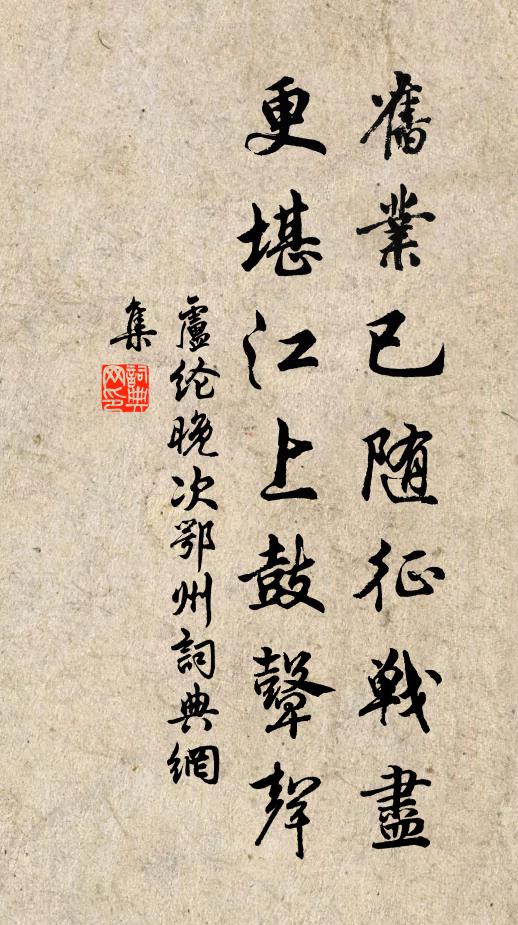 舊業已随征戰盡
更堪江上鼓鼙聲
盧纶晚次鄂州詞典網
集
詞典
网印